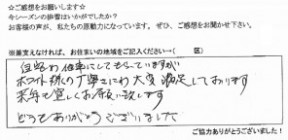 ☆ご感想をお願いします☆
今シーズンの弊害はいかがでしたか？
お客様の声が、私たちの原動力になっています。ぜひ、ご感想をお聞かせ下さい。
※差支えなければ、お住まいの地域をご記入ください…（　　区）
仕事にしてもらっていますが
丁寧さには大変満足しております
来年も宜しくお願い致します
どうもありがとうございました
ご協力ありがとうございました！